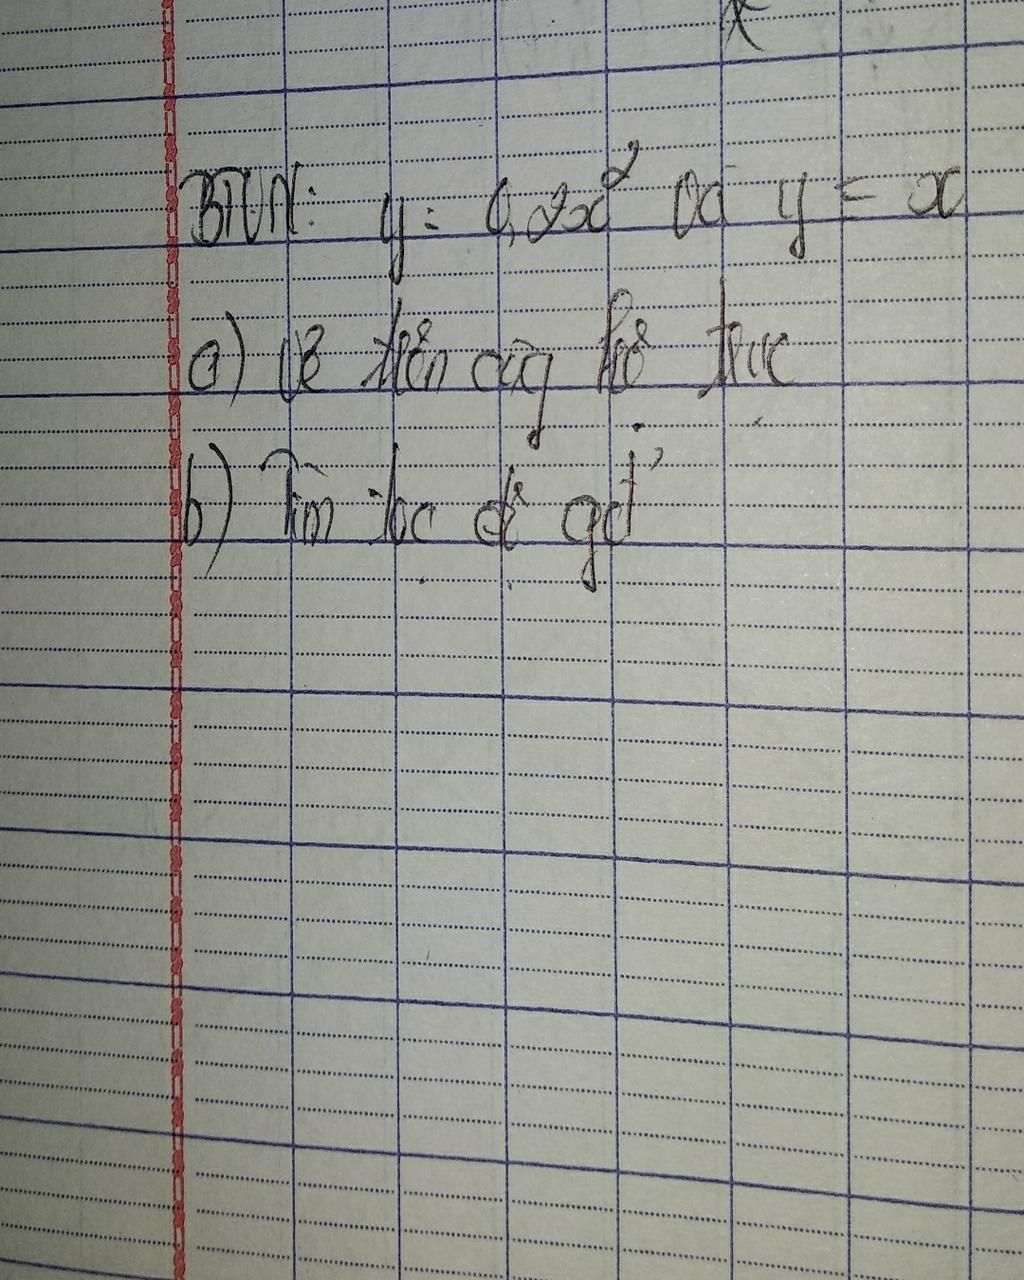 BTVN: y = 0,2x² và y = x
a) Vẽ trên cùng hệ trục
b) Tìm tọa độ gđ